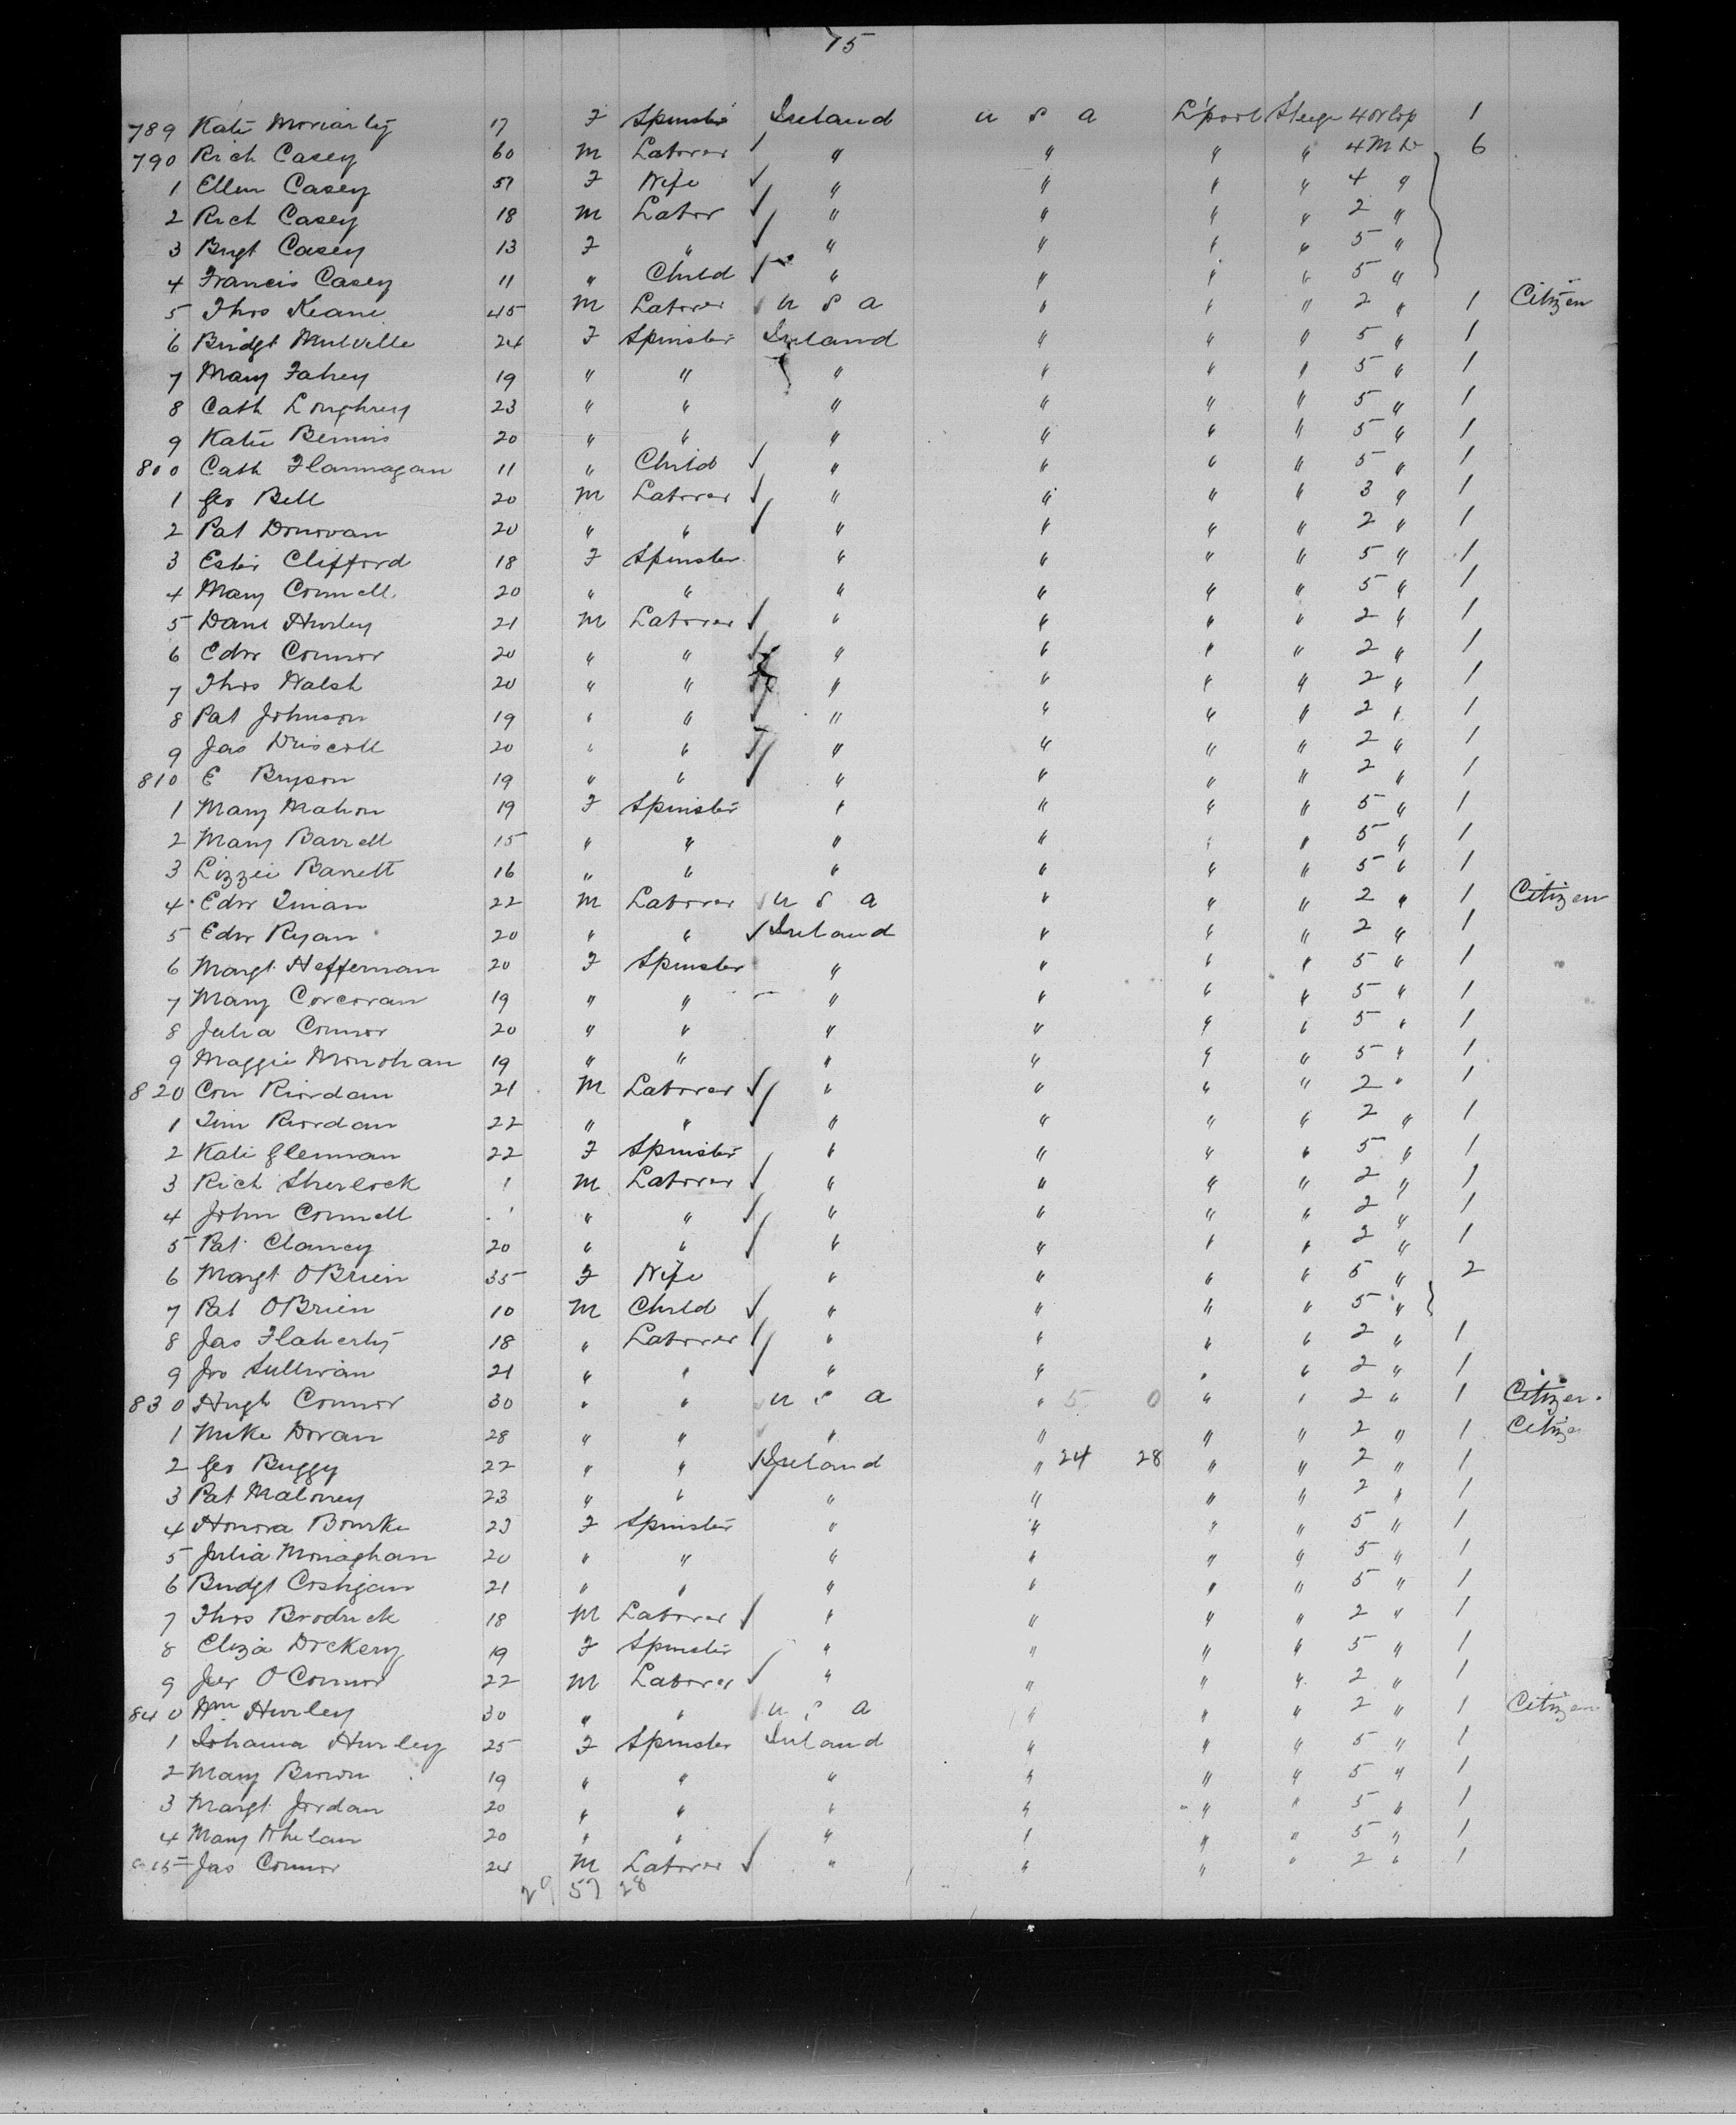 15
789 Katie Moriarty 17 F Spinster Ireland U S A L'pool Steege 4 Orlop 1
790 Rich Casey 60 M Laborer " " " " 4 M D 6
1 Ellen Casey 57 F Wife " " " " 4 "
2 Rich Casey 18 M Labor " " " " 2 "
3 Brgt Casey 13 F " " " " " 5 "
4 Francis Casey 11 " Child " " " " 5 "
5 Thos Keane 45 M Laborer U S A " " " 2 " 1 Citizen
6 Bridgt Mulville 24 F Spinster Ireland " " " 5 " 1
7 Mary Fahey 19 " " " " " " 5 " 1
8 Cath Loughrey 23 " " " " " " 5 " 1
9 Katie Bennis 20 " " " " " " 5 " 1
800 Cath Flannagan 11 " Child " " " " 5 " 1
1 Geo Bell 20 M Laborer " " " " 3 " 1
2 Pat Donovan 20 " " " " " " 2 " 1
3 Ester Clifford 18 F Spinster " " " " 5 " 1
4 Mary Connell 20 " " " " " " 5 " 1
5 Danl Hurley 21 M Laborer " " " " 2 " 1
6 Edw Connor 20 " " " " " " 2 " 1
7 Thos Walsh 20 " " " " " " 2 " 1
8 Pat Johnson 19 " " " " " " 2 " 1
9 Jas Driscoll 20 " " " " " " 2 " 1
810 E Bryson 19 " " " " " " 2 " 1
1 Mary Mahon 19 F Spinster " " " " 5 " 1
2 Mary Barrett 15 " " " " " " 5 " 1
3 Lizzie Barrett 16 " " " " " " 5 " 1
4 Edw 22 M Laborer U S A " " " 2 " 1 Citizen
5 Edw Ryan 20 " " Ireland " " " 2 " 1
6 Margt Heffernan 20 F Spinster " " " " 5 " 1
7 Mary Corcoran 19 " " " " " " 5 " 1
8 Julia Connor 20 " " " " " " 5 " 1
9 Maggie Monohan 19 " " " " " " 5 " 1
820 Con Riordan 21 M Laborer " " " " 2 " 1
1 Tim Riordan 22 " " " " " " 2 " 1
2 Katie Glennan 22 F Spinster " " " " 5 " 1
3 Rich Sherlock M Laborer " " " " 2 " 1
4 John Connell " " " " " " 2 " 1
5 Pat Clancy 20 " " " " " " 2 " 1
6 Margt OBrien 35 F Wife " " " " 5 " 2
7 Pat OBrien 10 M Child " " " " 5 "
8 Jas Flaherty 18 " Laborer " " " " 2 " 1
9 Jno Sullivan 21 " " " " " " 2 " 1
830 Hugh Connor 30 " " U S A " 5 0 " " 2 " 1 Citizen
1 Mike Doran 28 " " " " " " 2 " 1 Citize
2 Geo Buggy 22 " " Ireland " 24 28 " " 2 " 1
3 Pat Maloney 23 " " " " " " 2 " 1
4 Honora Bourke 23 F Spinster " " " " 5 " 1
5 Julia Monaghan 20 " " " " " " 5 " 1
6 Bridgt Costigan 21 " " " " " " 5 " 1
7 Thos Brodrick 18 M Laborer " " " " 2 " 1
8 Eliza Dockery 19 F Spinster " " " " 5 " 1
9 Jer O'Connor 22 M Laborer " " " " 2 " 1
840 Wm Hurley 30 " " U S A " " " 2 " 1 Citizen
1 Johanna Hurley 25 F Spinster Ireland " " " 5 " 1
2 Mary Brown 19 " " " " " " 5 " 1
3 Margt Jordan 20 " " " " " " 5 " 1
4 Mary Whelan 20 " " " " " " 5 " 1
5 Jas Connor 24 M Laborer " " " " 2 " 1
29 57 28